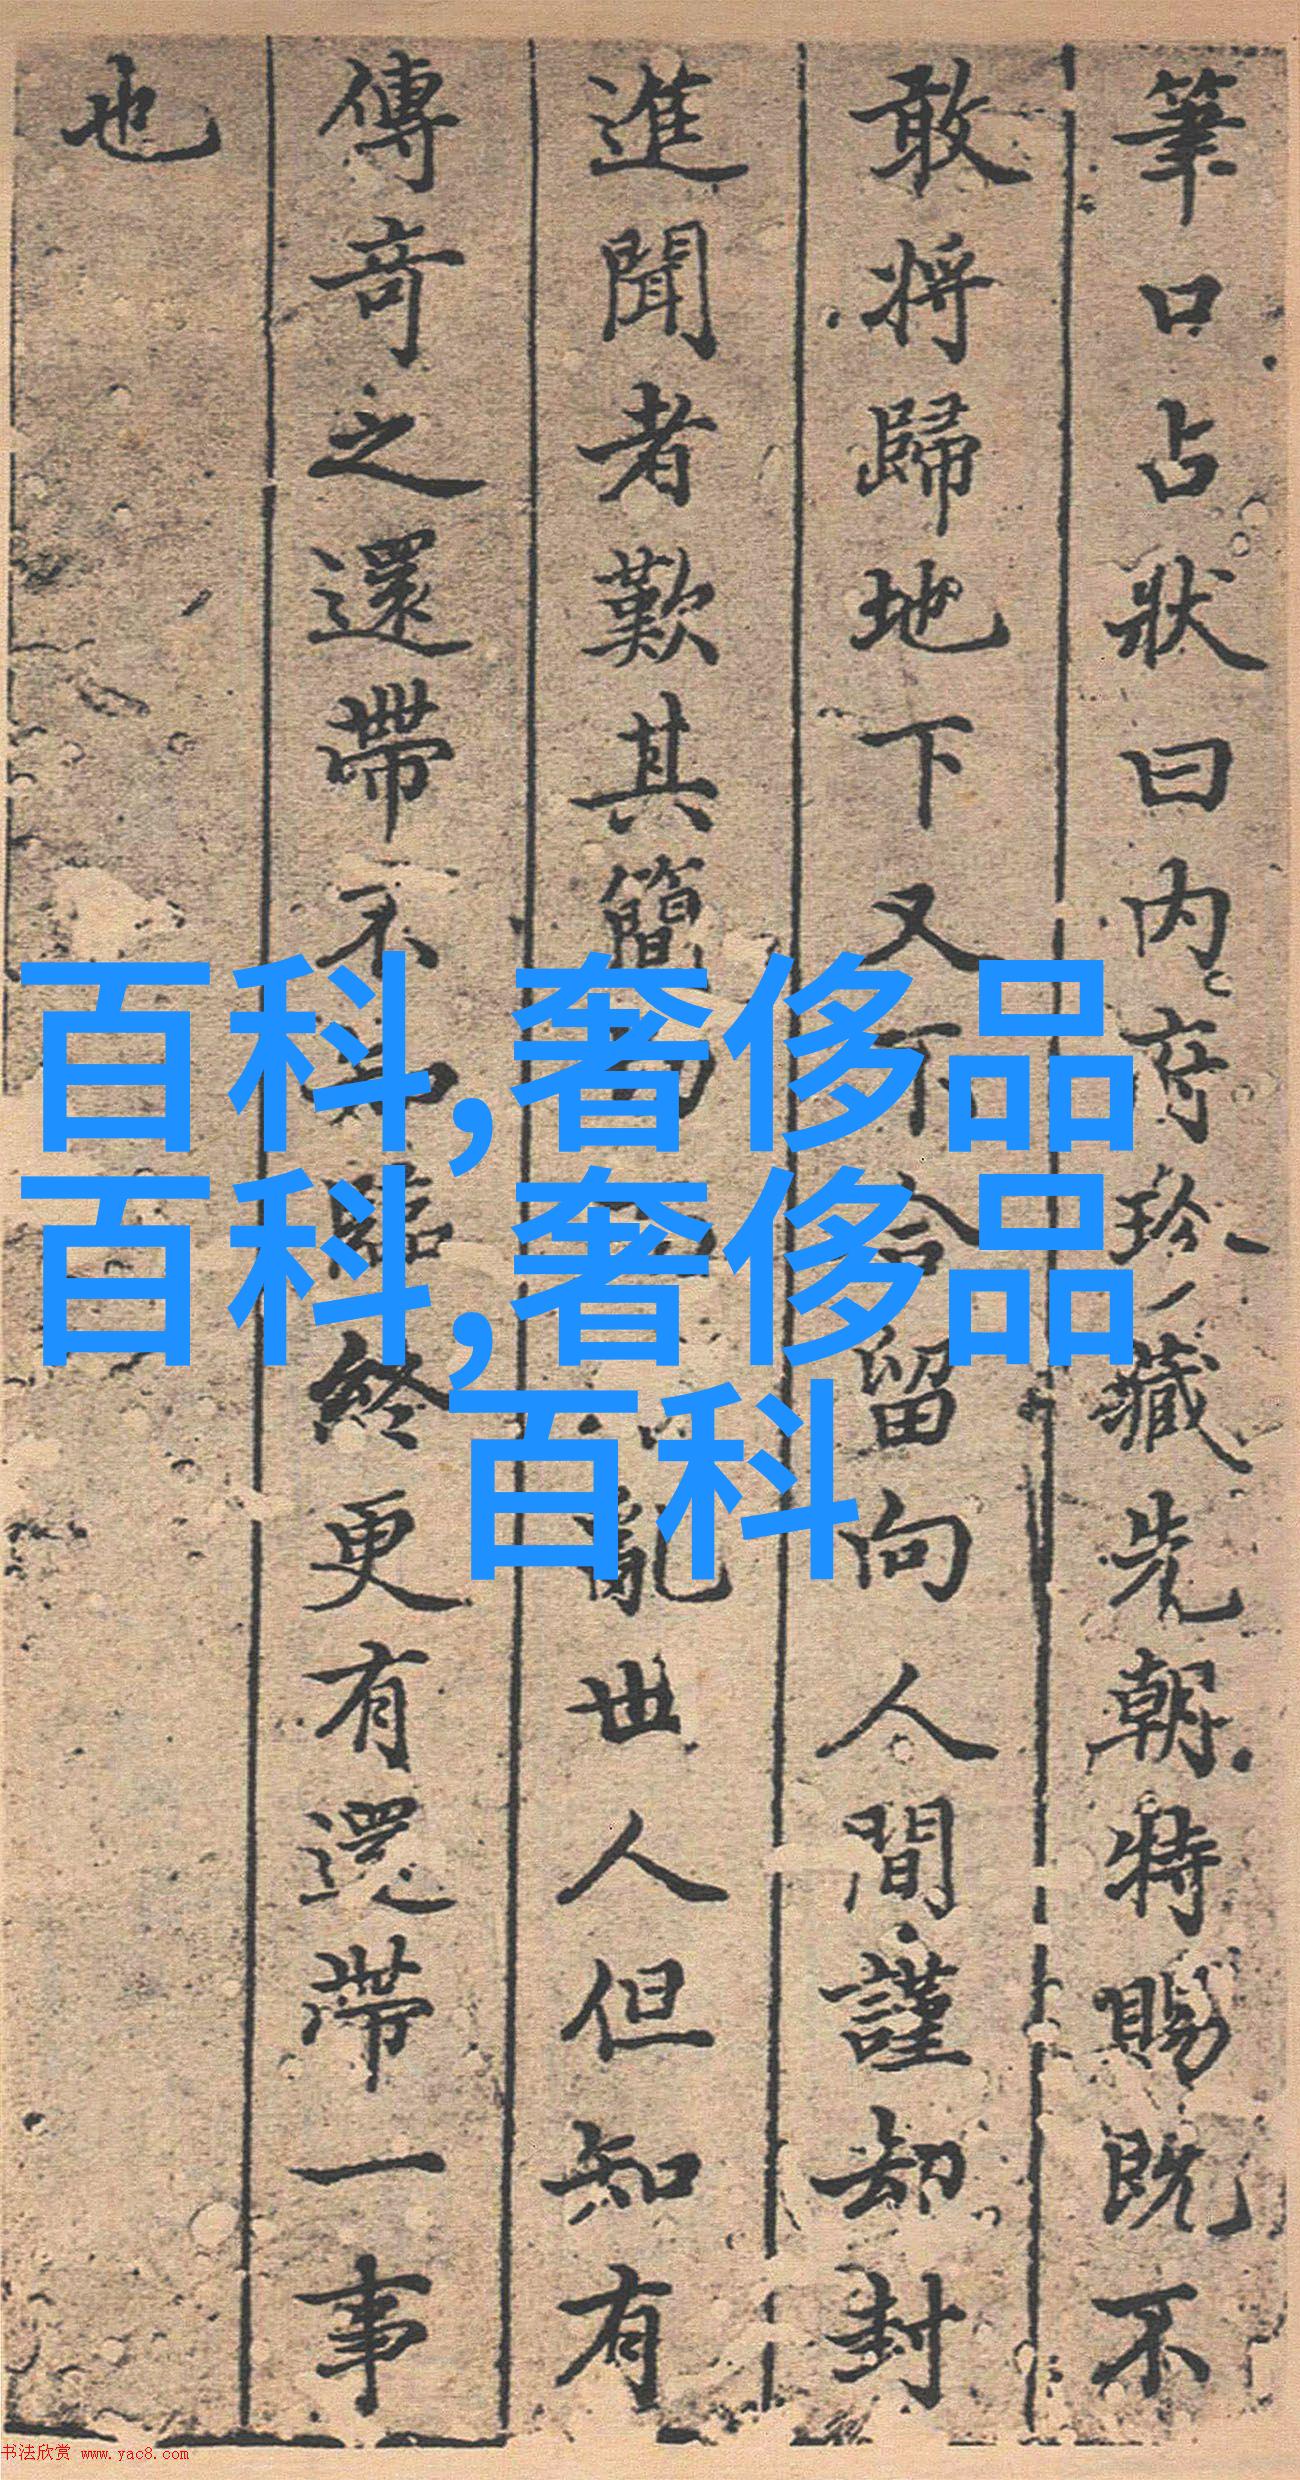 筆口占狀曰内府珍藏先朝特賜既不
敢將歸地下又不合留向人間謹却封
進聞者歎其簡亂世人但知有
傳奇之還帶不知臨終更有還帶一事
也
百科,奢侈品
百科,奢侈品
百科
书法欣赏 www.yac8.com